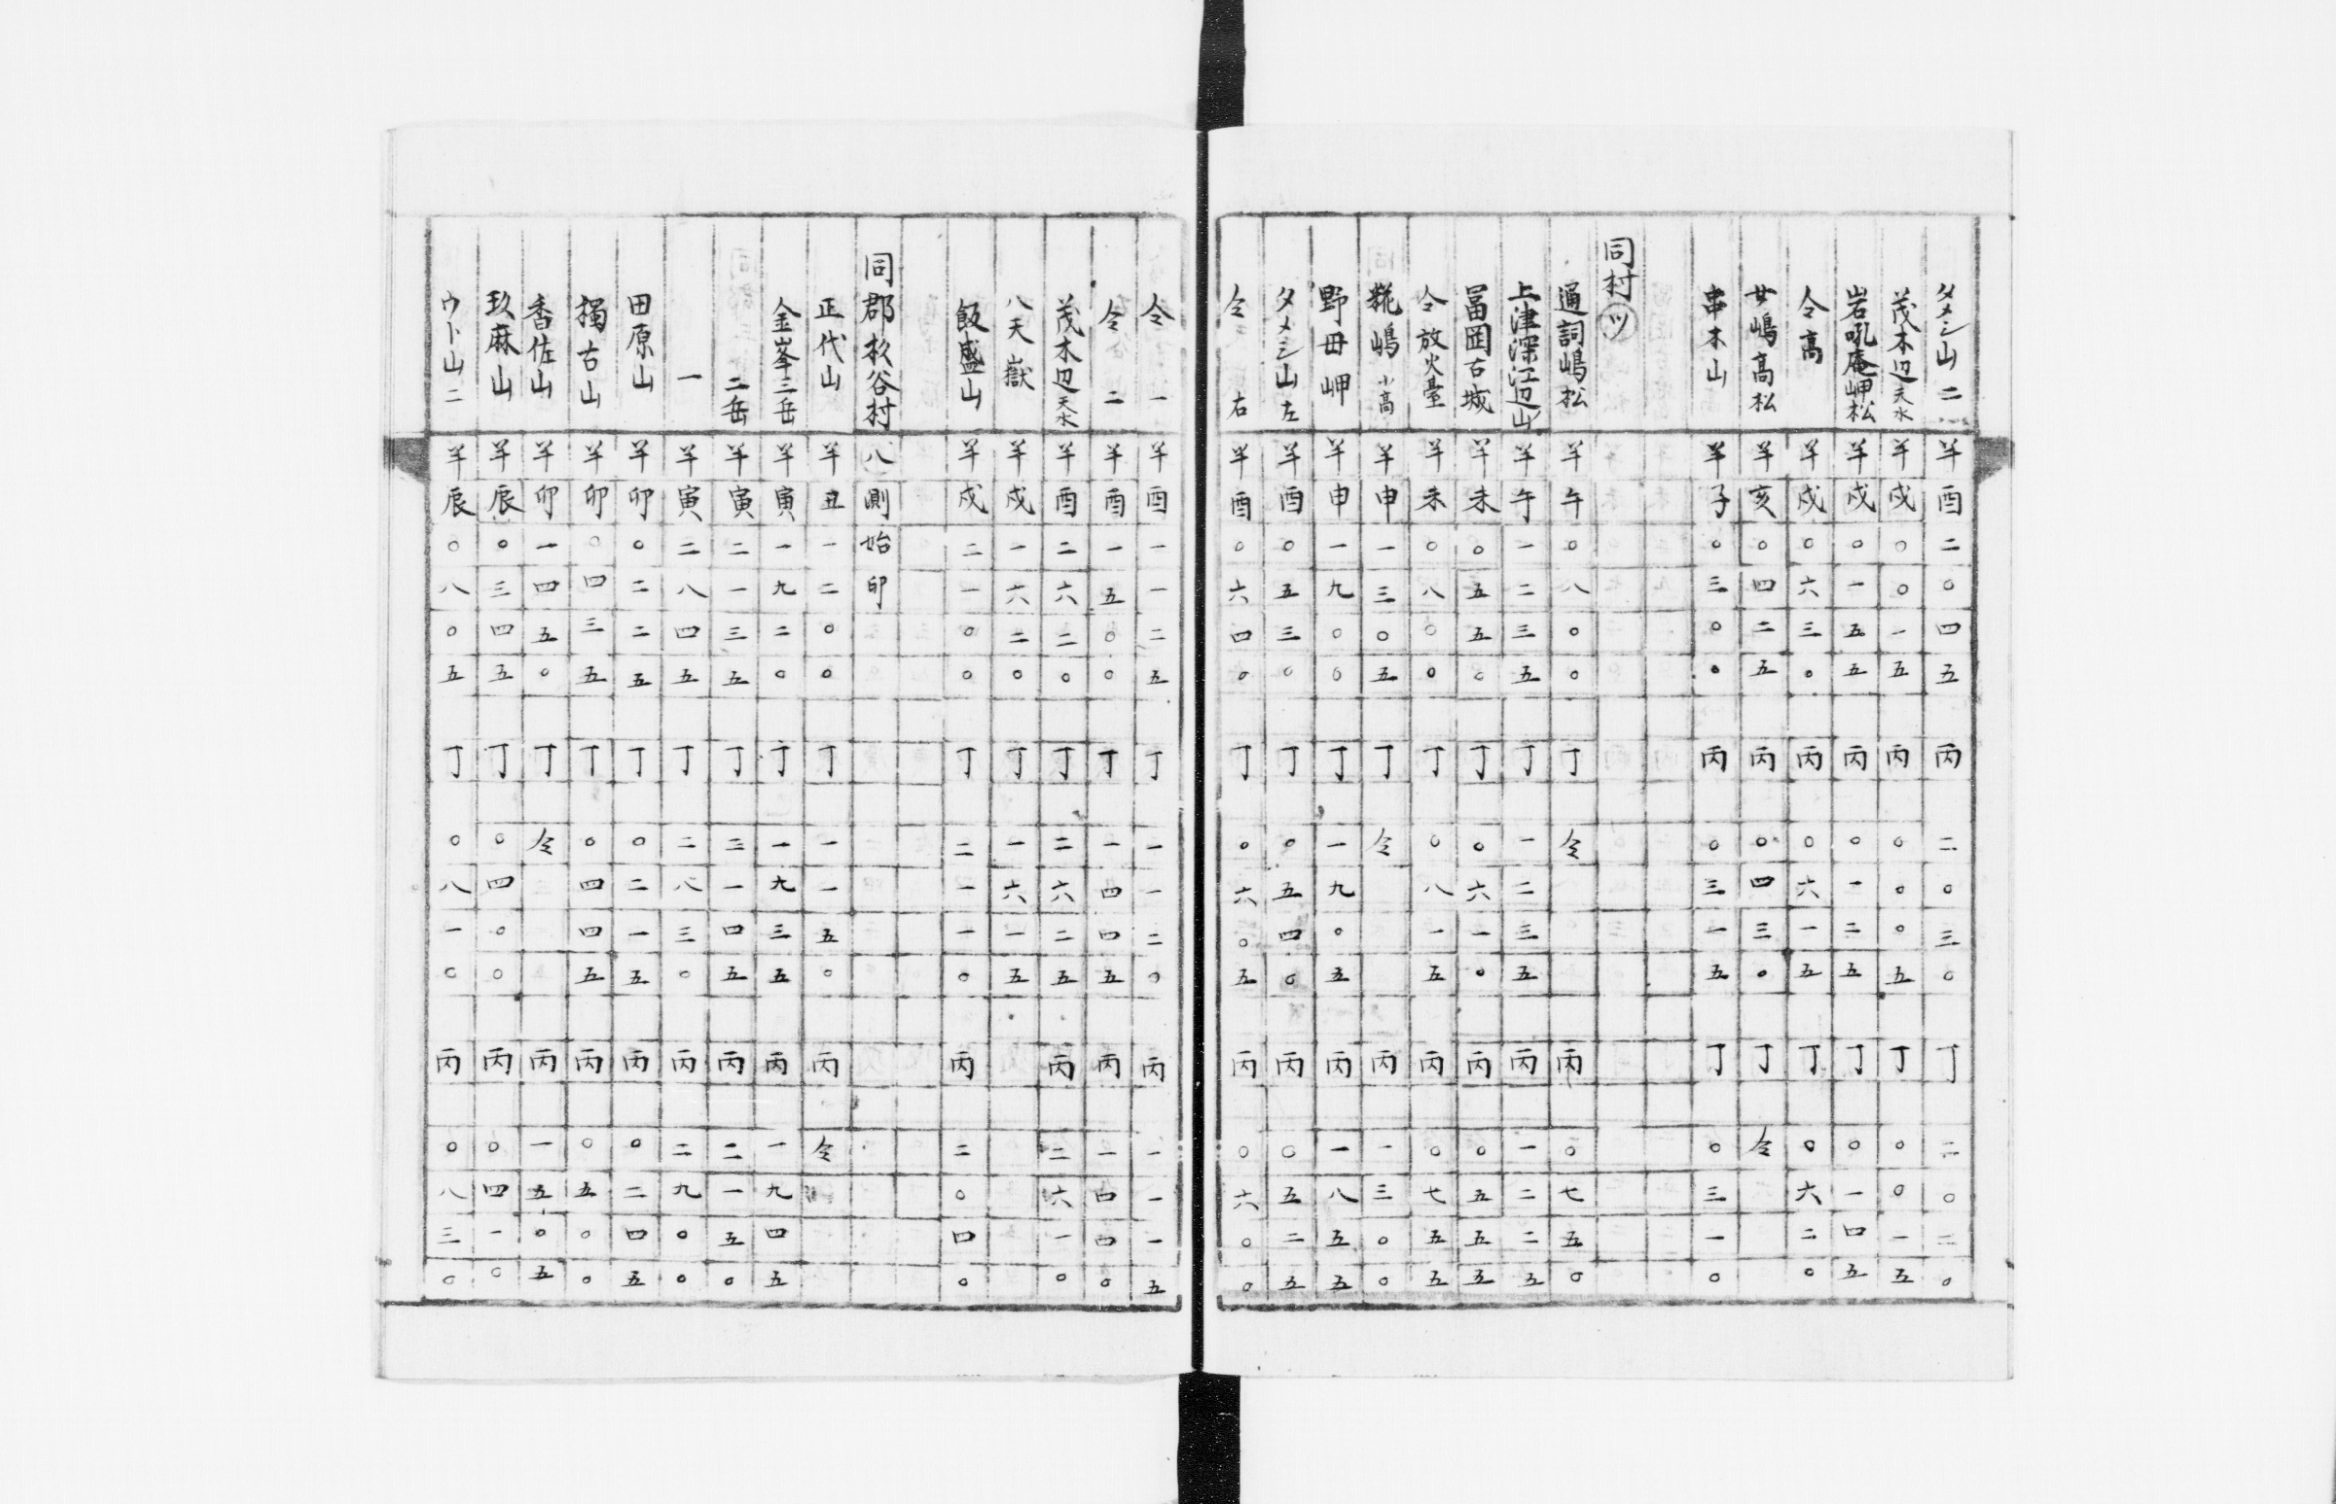 タメシ山二 羊酉二〇四五 丙二〇三〇 丁二〇二〇
茂木辺天水 羊戌〇〇一五 丙〇〇〇五 丁〇〇一五
岩吼庵岬松 羊戌〇一五五 丙〇一二五 丁〇一四五
仝高 羊戌〇六三〇 丙〇六一五 丁〇六二〇
廿嶋高松 羊亥〇四二五 丙〇四三〇 丁仝
串木山 羊子〇三〇〇 丙〇三一五 丁〇三一〇
同村ツ
通詞嶋松 羊午〇八〇〇 丁仝 丙〇七五〇
上津深江辺山 羊午一二三五 丁一二三五 丙一二二五
冨岡古城 羊未〇五五〇 丁〇六一〇 丙〇五五五
仝放火臺 羊未〇八〇〇 丁〇八一五 丙〇七五五
糀嶋小高 羊申一三〇五 丁仝 丙一三〇〇
野母岬 羊申一九〇〇 丁一九〇五 丙一八五五
タメシ山左 羊酉〇五三〇 丁〇五四〇 丙〇五二五
仝右 羊酉〇六四〇 丁〇六〇五 丙〇六〇〇
仝一 羊酉一一二五 丁一一二〇 丙一一一五
仝二 羊酉一五〇〇 丁一四四五 丙一四四〇
茂木辺天水 羊酉二六二〇 丁二六二五 丙二六一〇
八天嶽 羊戌一六二〇 丁一六一五
飯盛山 羊戌二一〇〇 丁二一一〇 丙二〇四〇
同郡杉谷村 八測始印
正代山 羊丑一二〇〇 丁一一五〇 丙仝
金峯三岳 羊寅一九二〇 丁一九三五 丙一九四五
二岳 羊寅二一三五 丁二一四五 丙二一五〇
一 羊寅二八四五 丁二八三〇 丙二九〇〇
田原山 羊卯〇二二五 丁〇二一五 丙〇二四五
獨古山 羊卯〇四三五 丁〇四四五 丙〇五〇〇
香佐山 羊卯一四五〇 丁仝 丙一五〇五
玖麻山 羊辰〇三四五 丁〇四〇〇 丙〇四一〇
ウト山二 羊辰〇八〇五 丁〇八一〇 丙〇八三〇